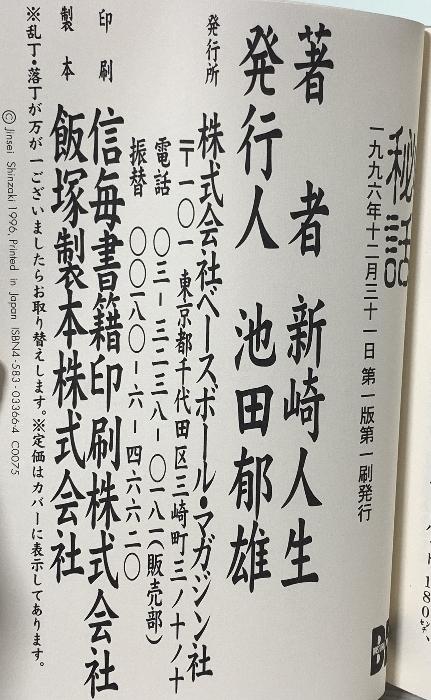 秘話
一九九六年十二月三十一日 第一版第一刷発行
著者 新崎人生
発行人 池田郁雄
発行所 株式会社ベースボール・マガジン社
〒一〇一 東京都千代田区三崎町三ノ十ノ十
電話 〇三-三二三八-〇一八一(販売部)
振替 〇〇一八〇-六-四六六二〇
印刷 信毎書籍印刷株式会社
製本 飯塚製本株式会社
※乱丁・落丁が万が一ございましたらお取り替えします。※定価はカバーに表示してあります。
© Jinsei Shinzaki 1996, Printed in Japan ISBN4-583-03366-4 C0075
180㌢、